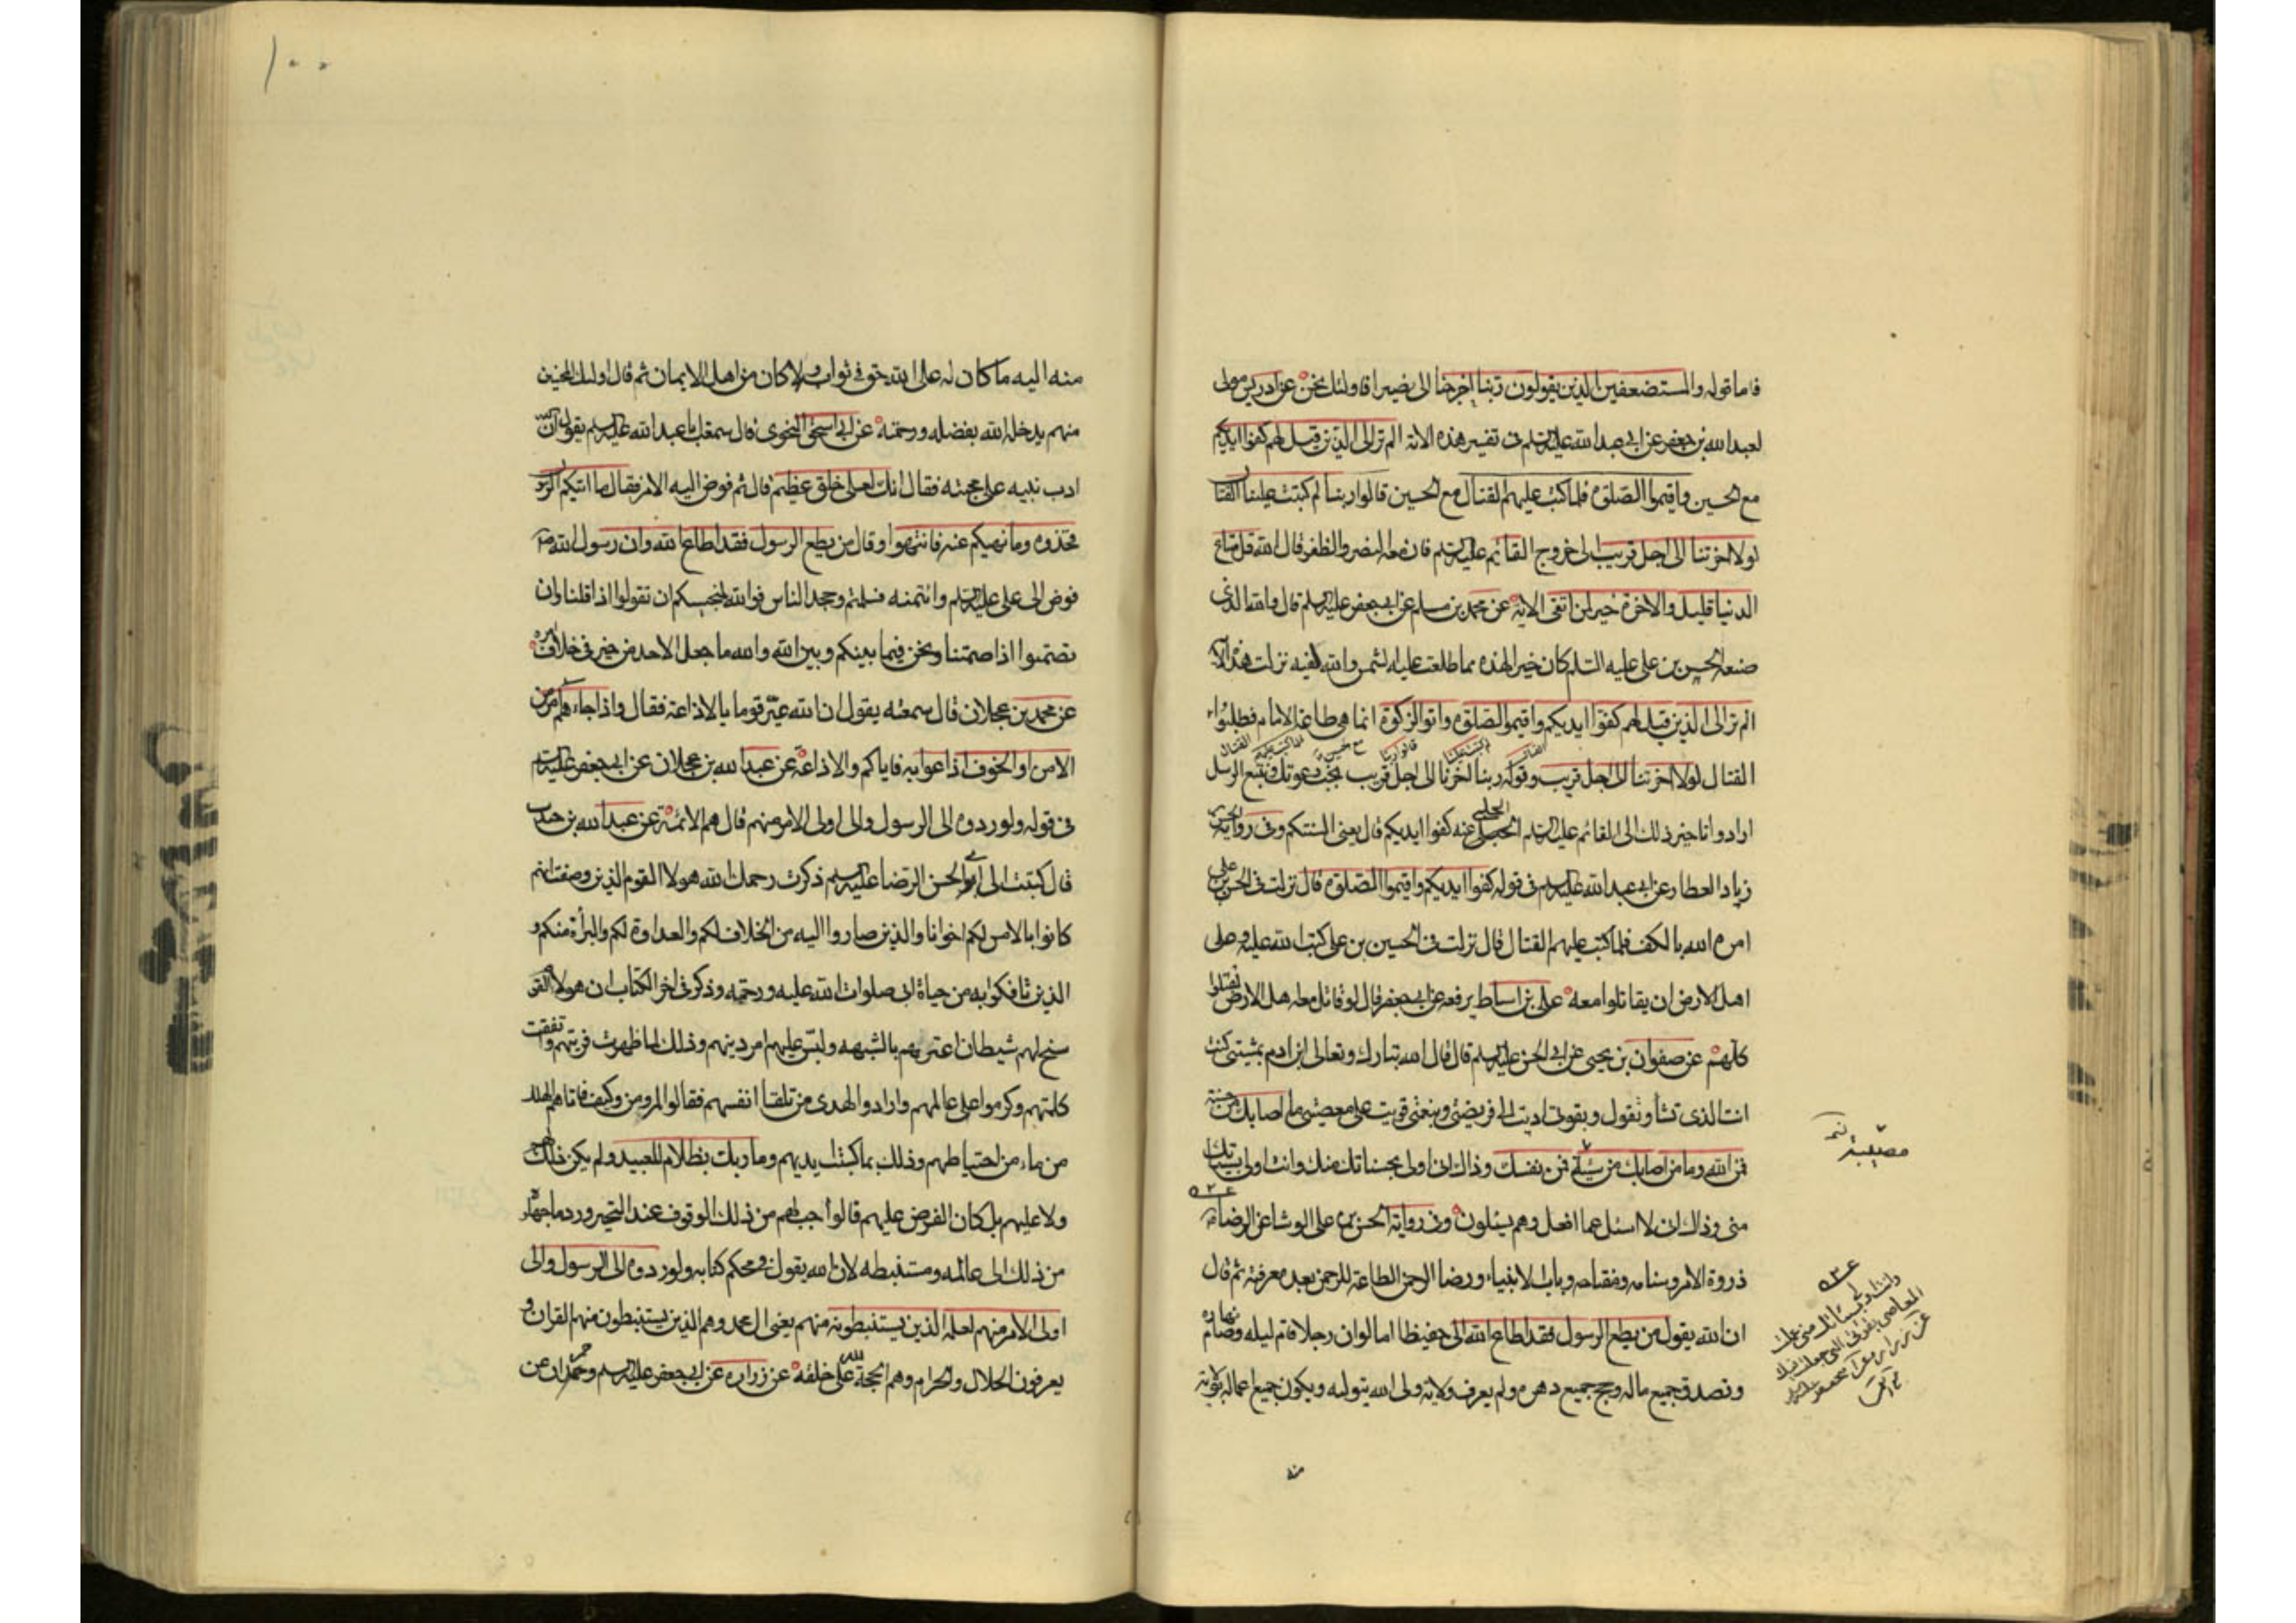 فاما قوله والمستضعفين الذين يقولون ربنا اخرجنا الى نصيرا فاولئك نحن عن ادريس مولى
لعبد الله بن جعفر عن ابى عبد الله عليه السلم فى تفسير هذه الاية الم تر الى الذين قيل لهم كفوا ايديكم
مع الحسن واقيموا الصلوة فلما كتب عليهم القتال مع الحسين قالوا ربنا لم كتبت علينا القتال
لولا اخرتنا الى اجل قريب الى خروج القائم عليه السلم فان معه النصر والظفر قال الله قل متاع
الدنيا قليل والاخرة خير لمن اتقى الاية عن محمد بن مسلم عن ابى جعفر عليه السلم قال والله الذى
صنعه الحسن بن على عليه السلم كان خيرا لهذه مما طلعت عليه الشمس والله لفيه نزلت هذه الاية
الم تر الى الذين قيل لهم كفوا ايديكم واقيموا الصلوة واتوا الزكوة انما هى طاعة الامام فطلبوا
القتال فلما كتب عليهم القتال مع الحسين قالوا ربنا لم كتبت علينا القتال
القتال لولا اخرتنا الى اجل قريب وقوله ربنا اخرنا الى اجل قريب نجب دعوتك ونتبع الرسل
ارادوا تاخير ذلك الى القائم عليه السلم الحلبى عنه كفوا ايديكم قال يعنى السنتكم وفى رواية الحسن بن
زياد العطار عن ابى عبد الله عليه السلم فى قوله كفوا ايديكم واقيموا الصلوة قال نزلت فى الحسن بن على
امره الله بالكف فلما كتب عليهم القتال قال نزلت فى الحسين بن على كتب الله عليه وعلى
اهل الارض ان يقاتلوا معه على بن اسباط يرفعه عن ابى جعفر قال لو قاتل معه اهل الارض لقتلوا
كلهم عن صفوان بن يحيى عن ابى الحسن عليه السلم قال قال الله تبارك وتعالى ابن ادم بمشيتى كنت
انت الذى تشاء وتقول وبقوتى اديت الى فريضتى وبنعمتى قويت على معصيتى ما اصابك من حسنة
فمن الله وما اصابك من سيئة فمن نفسك وذاك انى اولى بحسناتك منك وانت اولى بسيئاتك
منى وذاك انى لا اسئل عما افعل وهم يسئلون وفى رواية الحسن بن على الوشا عن الرضا
ذروة الامر وسنامه ومفتاحه وباب الانبياء ورضا الرحمن الطاعة للرحمن بعد معرفته ثم قال
ان الله يقول من يطع الرسول فقد اطاع الله الى حفيظا اما لو ان رجلا قام ليله وصام نهاره
وتصدق جميع ماله وحج جميع دهره ولم يعرف ولاية ولى الله فيواليه ويكون جميع اعماله بولايته
منه
مصيبة
وانت اولى بسيئاتك منى عملت
المعاصى بقوتى التى جعلت فيك
١٠٠
منه اليه ما كان له على الله حق فى ثواب ولا كان من اهل الايمان ثم قال اولئك المحسن
منهم يدخله الله بفضله ورحمته عن ابى اسحق النحوى قال سمعت ابا عبد الله عليه السلم يقول ان الله
ادب نبيه على محبته فقال انك لعلى خلق عظيم قال ثم فوض اليه الامر فقال ما اتيكم الرسول
فخذوه وما نهيكم عنه فانتهوا وقال من يطع الرسول فقد اطاع الله وان رسول الله
فوض الى على عليه السلم وائتمنه فسلمتم وجحد الناس فوالله لنحبكم ان تقولوا اذا قلنا وان
تصمتوا اذا صمتنا ونحن فيما بينكم وبين الله والله ما جعل لاحد من خير فى خلاف امره
عن محمد بن عجلان قال سمعته يقول ان الله عير قوما بالاذاعة فقال واذا جاءهم امر من
الامن او الخوف اذاعوا به فاياكم والاذاعة عن عبد الله بن عجلان عن ابى جعفر عليه السلم
فى قوله ولو ردوه الى الرسول والى اولى الامر منهم قال هم الائمة عن عبد الله بن جندب
قال كتبت الى ابو الحسن الرضا عليه السلم ذكرت رحمك الله هولاء القوم الذين وصفت انهم
كانوا بالامس لكم اخوانا والذين صاروا اليه من الخلاف لكم والعداوة لكم والبرأة منكم و
الذين تافكوا به من حياة ابى صلوات الله عليه ورحمته وذكر فى اخر الكتاب ان هولاء القوم
سنح لهم شيطان اعترهم بالشبهه ولبس عليهم امر دينهم وذلك لما ظهرت فريتهم واتفقت
كلمتهم وكرموا على عالمهم وارادوا الهدى من تلقاء انفسهم فقالوا لم ومن وكيف فاتاهم الهلك
من ماءمن احتياطهم وذلك بما كسبت يديهم وما ربك بظلام للعبيد ولم يكن ذلك لهم
ولا عليهم بل كان الفرض عليهم قالواجب لهم من ذلك الوقوف عند التحير ورد ما جهلوه
من ذلك الى عالمه ومستنبطه لان الله يقول فى محكم كتابه ولو ردوه الى الرسول والى
اولى الامر منهم لعلمه الذين يستنبطونه منهم يعنى ال محمد وهم الذين يستنبطون منهم القران و
يعرفون الحلال والحرام وهم الحجة لله على خلقه عن زراره عن ابى جعفر عليه السلم وحمران عن